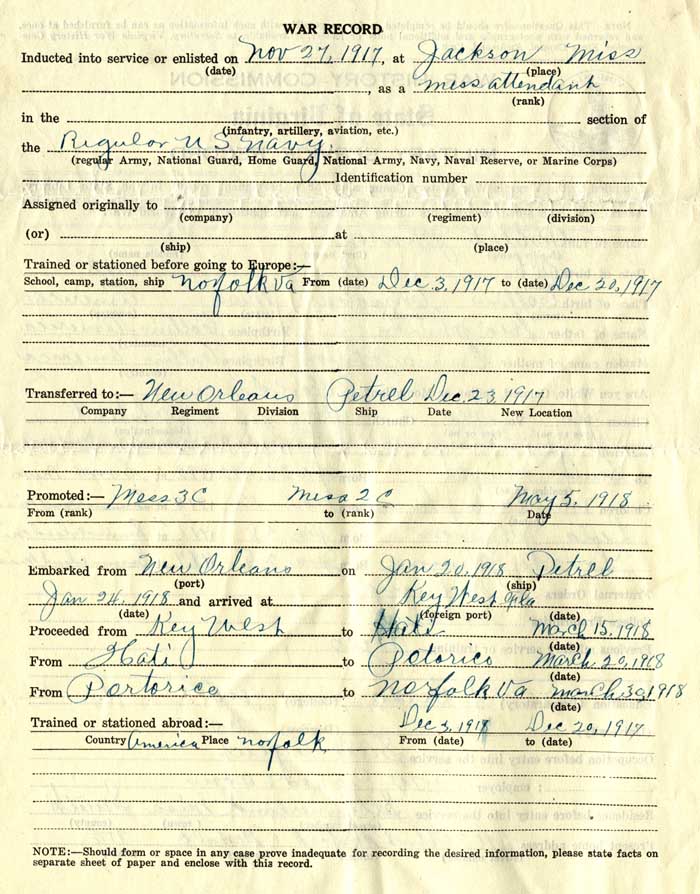 WAR RECORD
Inducted into service or enlisted on Nov 27, 1917, at Jackson Miss
(date) (place)
, as a mess attendant
(rank)
in the section of
(infantry, artillery, aviation, etc.)
the Regular U S Navy.
(regular Army, National Guard, Home Guard, National Army, Navy, Naval Reserve, or Marine Corps)
Identification number
Assigned originally to
(company) (regiment) (division)
(or) at
(ship) (place)
Trained or stationed before going to Europe:—
School, camp, station, ship Norfolk Va From (date) Dec 3, 1917 to (date) Dec 20, 1917
Transferred to:— New Orleans Petrel Dec. 23, 1917
Company Regiment Division Ship Date New Location
Promoted:— Mess 3 C Mess 2 C May 5, 1918
From (rank) to (rank) Date
Embarked from New Orleans on Jan 20, 1918 Petrel
(port) (ship)
Jan 24, 1918 and arrived at Key West Fla
(date) (foreign port) (date)
Proceeded from Key West to Hati March 15, 1918
(date)
From Hati to Potorico March 20, 1918
(date)
From Portorico to Norfolk Va March 30, 1918
(date)
Trained or stationed abroad:— Dec 3, 1917 Dec 20, 1917
Country America Place Norfolk From (date) to (date)
NOTE:—Should form or space in any case prove inadequate for recording the desired information, please state facts on
separate sheet of paper and enclose with this record.